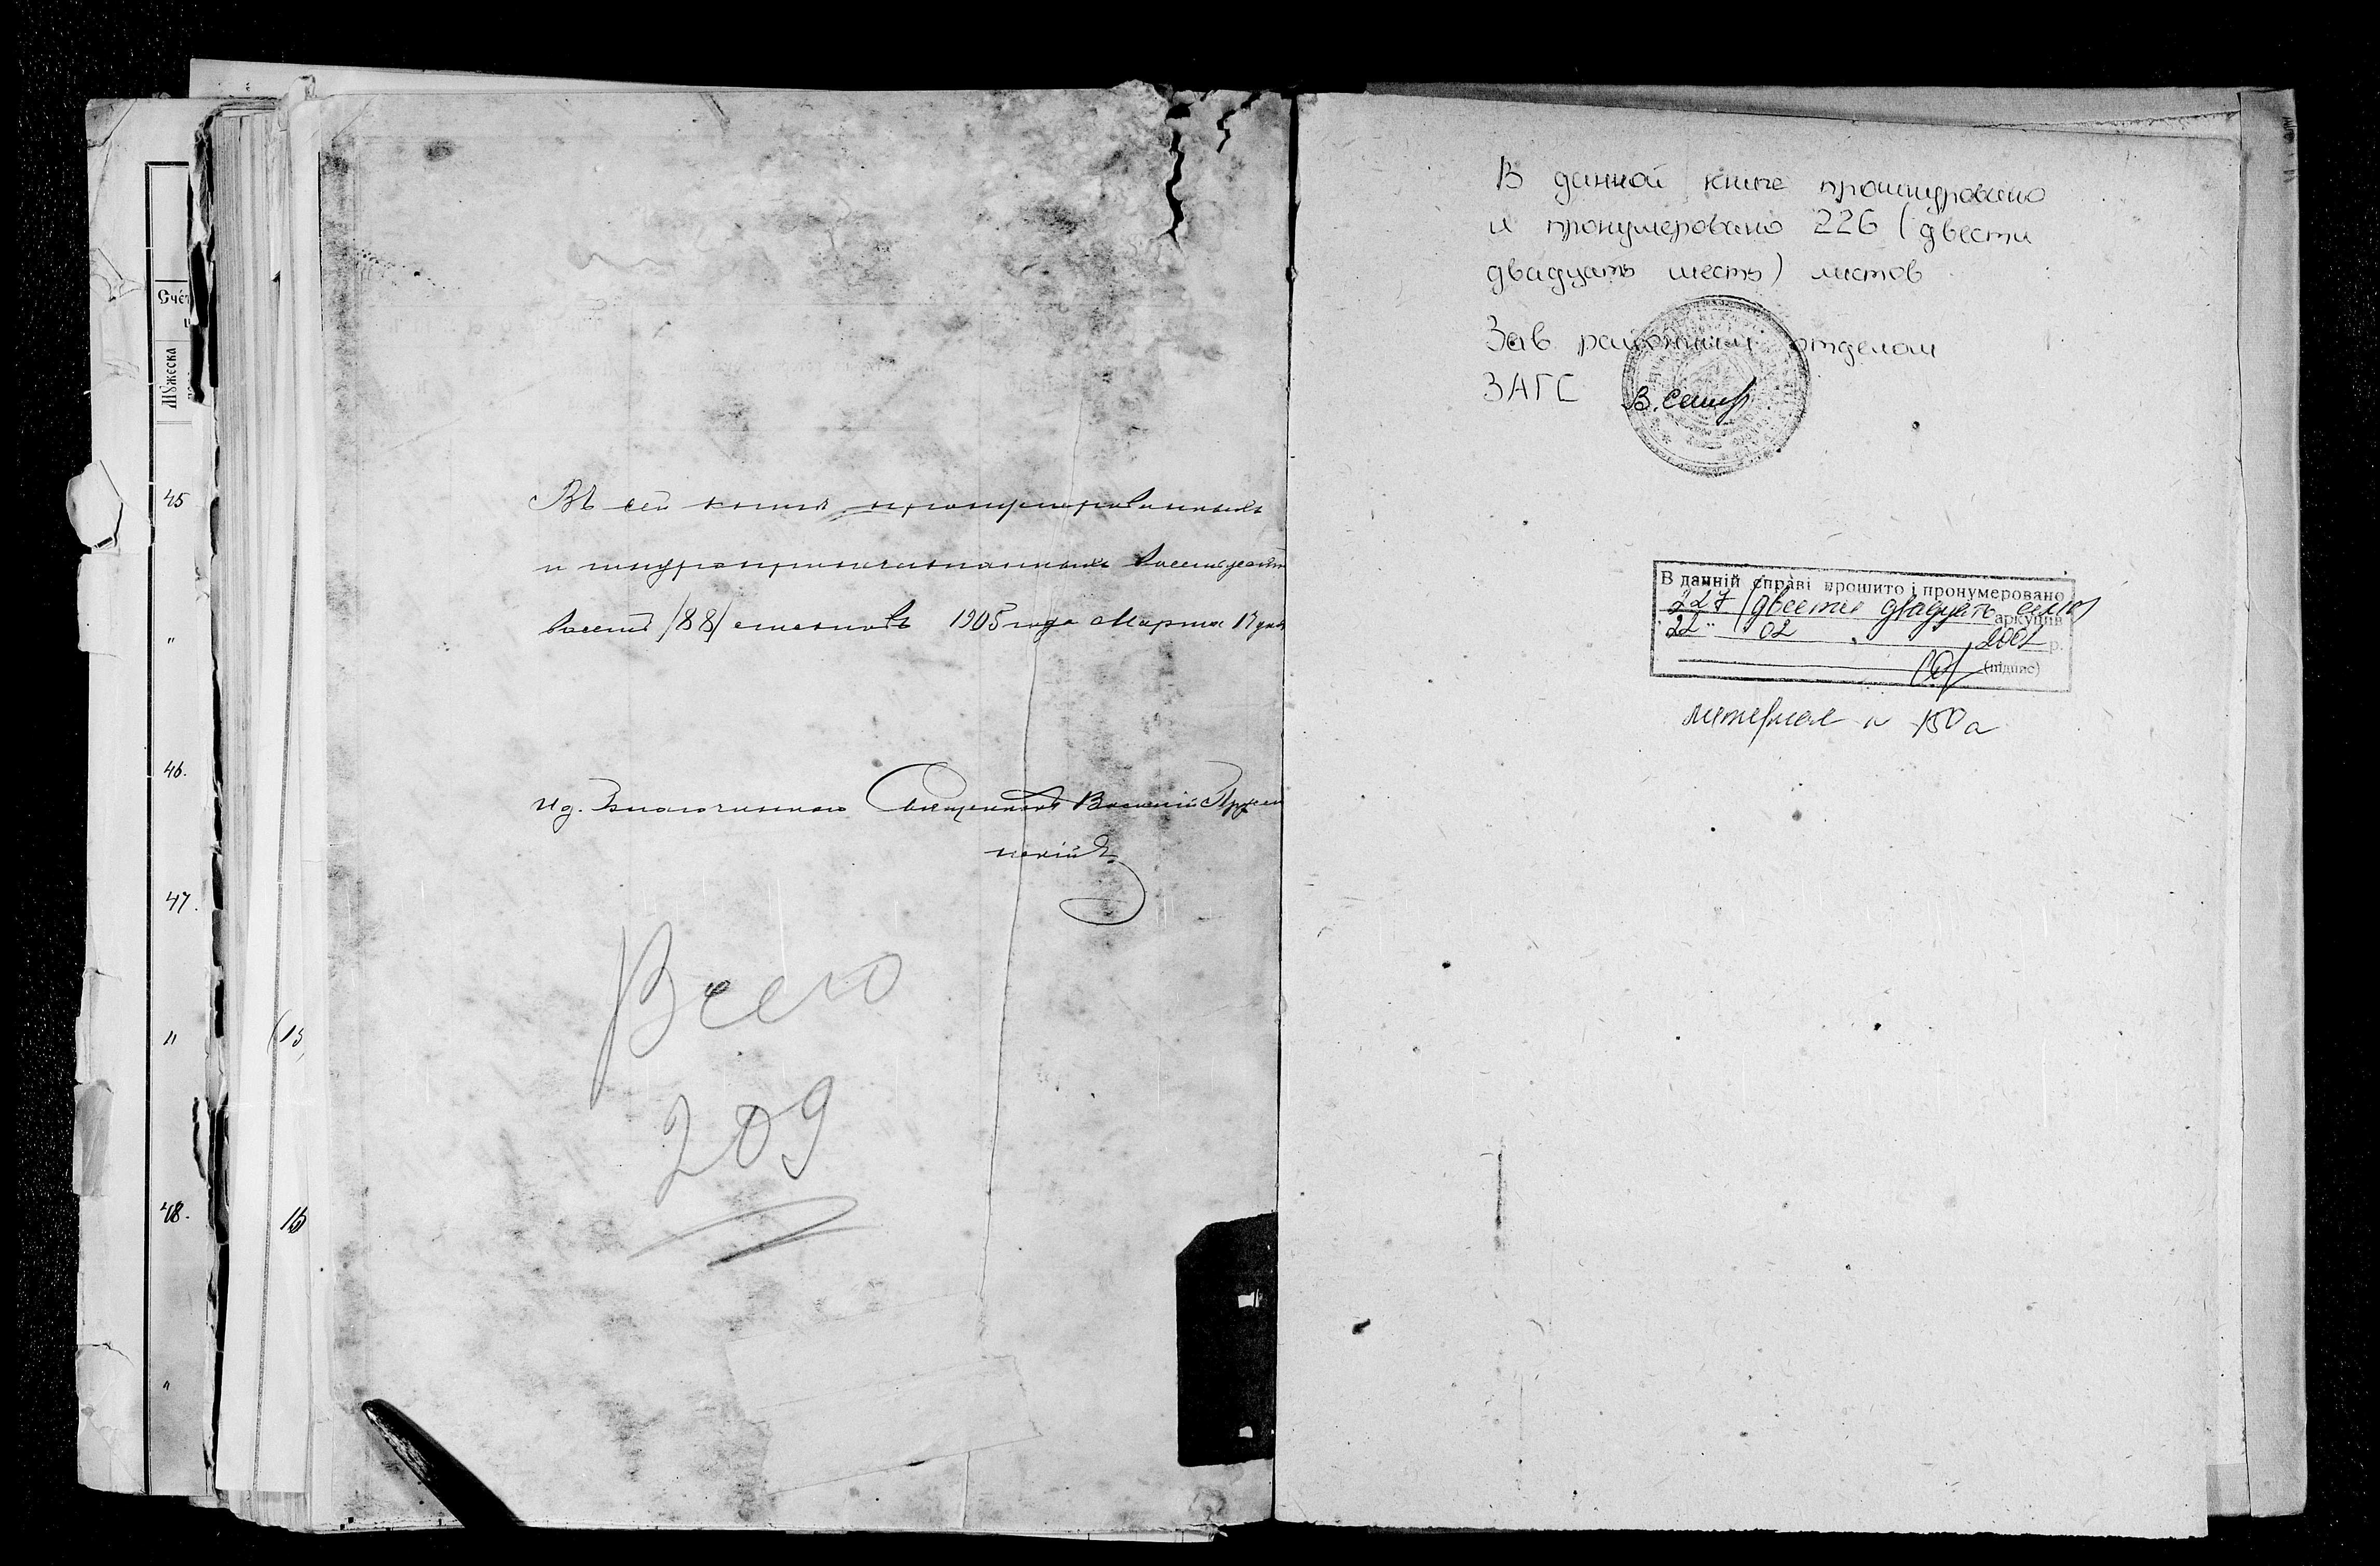 Счет
Мужеска
45
"
46.
47.
"
48.
"
(15
16
Въ сей книгѣ пронумерованныхъ
и шнуроприпечатанныхъ восемьдесятъ
восемь /88/ листовъ 1905 года Марта 17 дня
И д. Благочиннаго Священникъ Василій
нскій
Всего
209
В данной книге прошнуровано
и пронумеровано 226 (двести
двадцать шесть) листов
Зав районным отделом
ЗАГС
В данній справі прошито і пронумеровано
227 (двести двадцать семь) аркушів
"22" 02 2001 р.
(підпис)
литерная н 150а